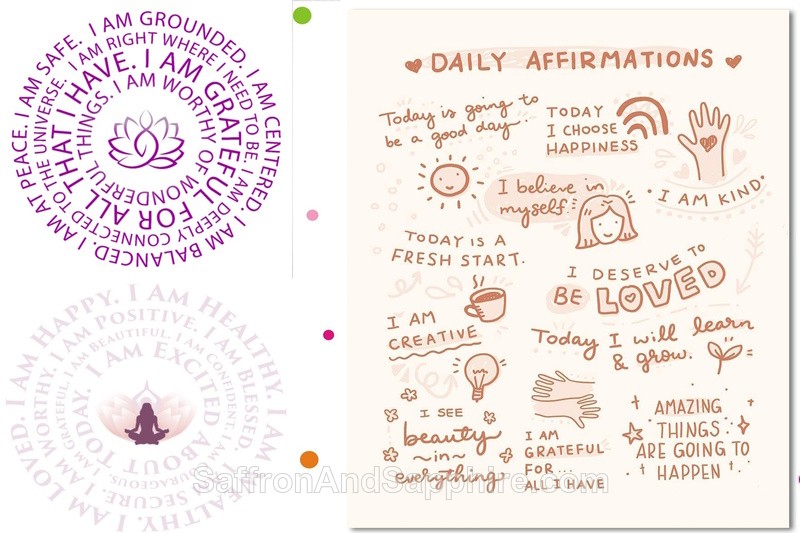 I AM SAFE. I AM GROUNDED. I AM CENTERED. I AM BALANCED. I AM AT PEACE.
I AM RIGHT WHERE I NEED TO BE. I AM DEEPLY CONNECTED TO THE UNIVERSE.
I AM GRATEFUL FOR ALL THAT I HAVE.
I AM WORTHY OF WONDERFUL THINGS.
I AM HAPPY. I AM HEALTHY. I AM
HEALTHY. I AM LOVED.
I AM POSITIVE. I AM BLESSED
SECURE. I AM WORTHY.
I AM BEAUTIFUL. I AM CONFIDENT. I AM
COURAGEOUS.
I AM GRATEFUL.
I AM EXCITED ABOUT TODAY.
DAILY AFFIRMATIONS
Today is going to
be a good day.
TODAY
I CHOOSE
HAPPINESS
I AM KIND.
I believe in
myself.
TODAY IS A
FRESH START.
I DESERVE TO
BE LOVED
I AM
CREATIVE
Today I will learn
& grow.
I SEE
beauty
~in~
everything.
I AM
GRATEFUL
FOR...
ALL I HAVE
AMAZING
THINGS
ARE GOING TO
HAPPEN
SaffronAndSapphire.com